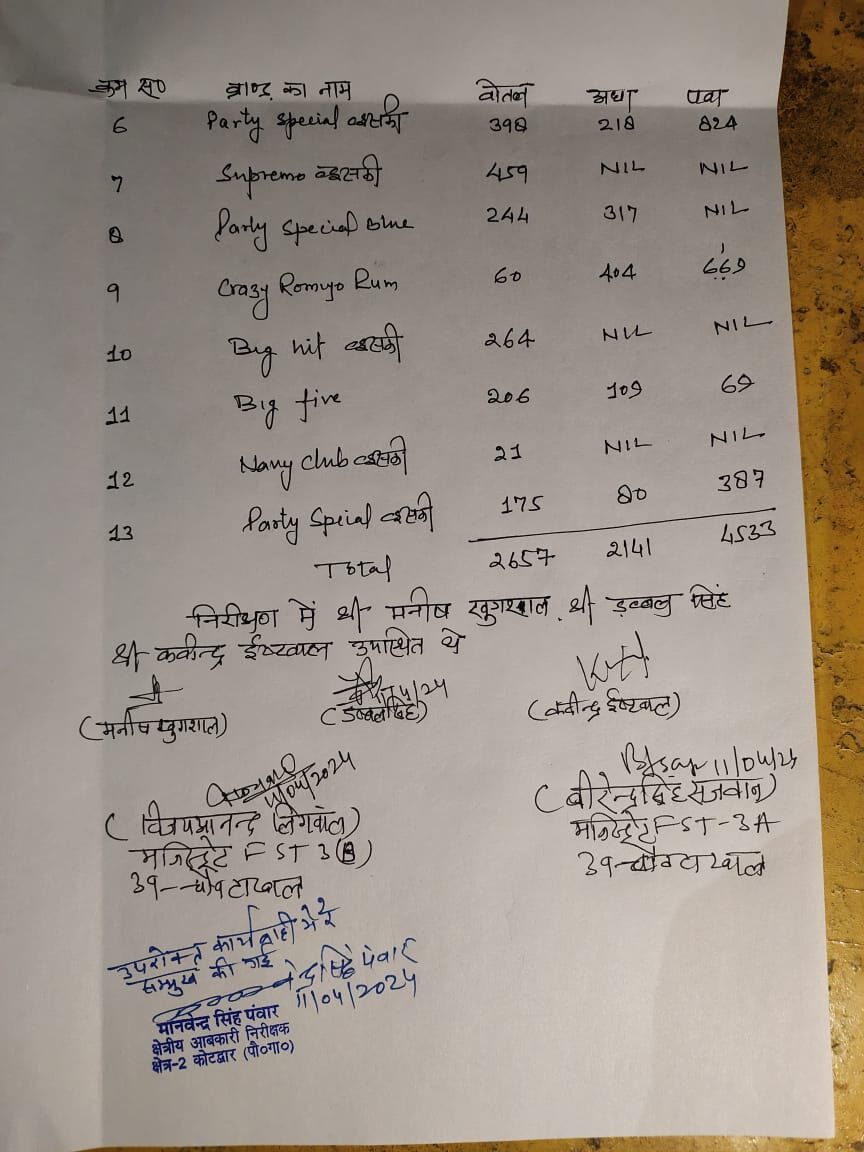 क्रम स० ब्राण्ड का नाम बोतल अधा पव्वा
6 Party special व्हिस्की 398 218 824
7 Supremo व्हिस्की 459 NIL NIL
8 Party special Blue 244 317 NIL
9 Crazy Romyo Rum 60 404 669
10 Big hit व्हिस्की 264 NIL NIL
11 Big five 206 109 69
12 Navy Club व्हिस्की 21 NIL NIL
13 Party Special व्हिस्की 175 80 387
Total 2657 2141 4533
निरीक्षण में श्री मनीष खुगशाल, श्री डब्बलु सिंह
श्री कवीन्द्र ईष्टवाल उपस्थित थे
(मनीष खुगशाल) (डब्बलु सिंह) (कवीन्द्र ईष्टवाल)
11/04/2024 11/04/24
(विजयआनन्द लिंगवाल) (बीरेन्द्र सिंह सजवान)
मजिस्ट्रेट FST 3(B) मजिस्ट्रेट FST-3A
39-चौबटाखाल 39-चौबटाखाल
उपरोक्त कार्यवाही मेरे
सम्मुख की गई
11/04/2024
मानवेन्द्र सिंह पंवार
क्षेत्रीय आबकारी निरीक्षक
क्षेत्र-2 कोटद्वार (पौ०गा०)